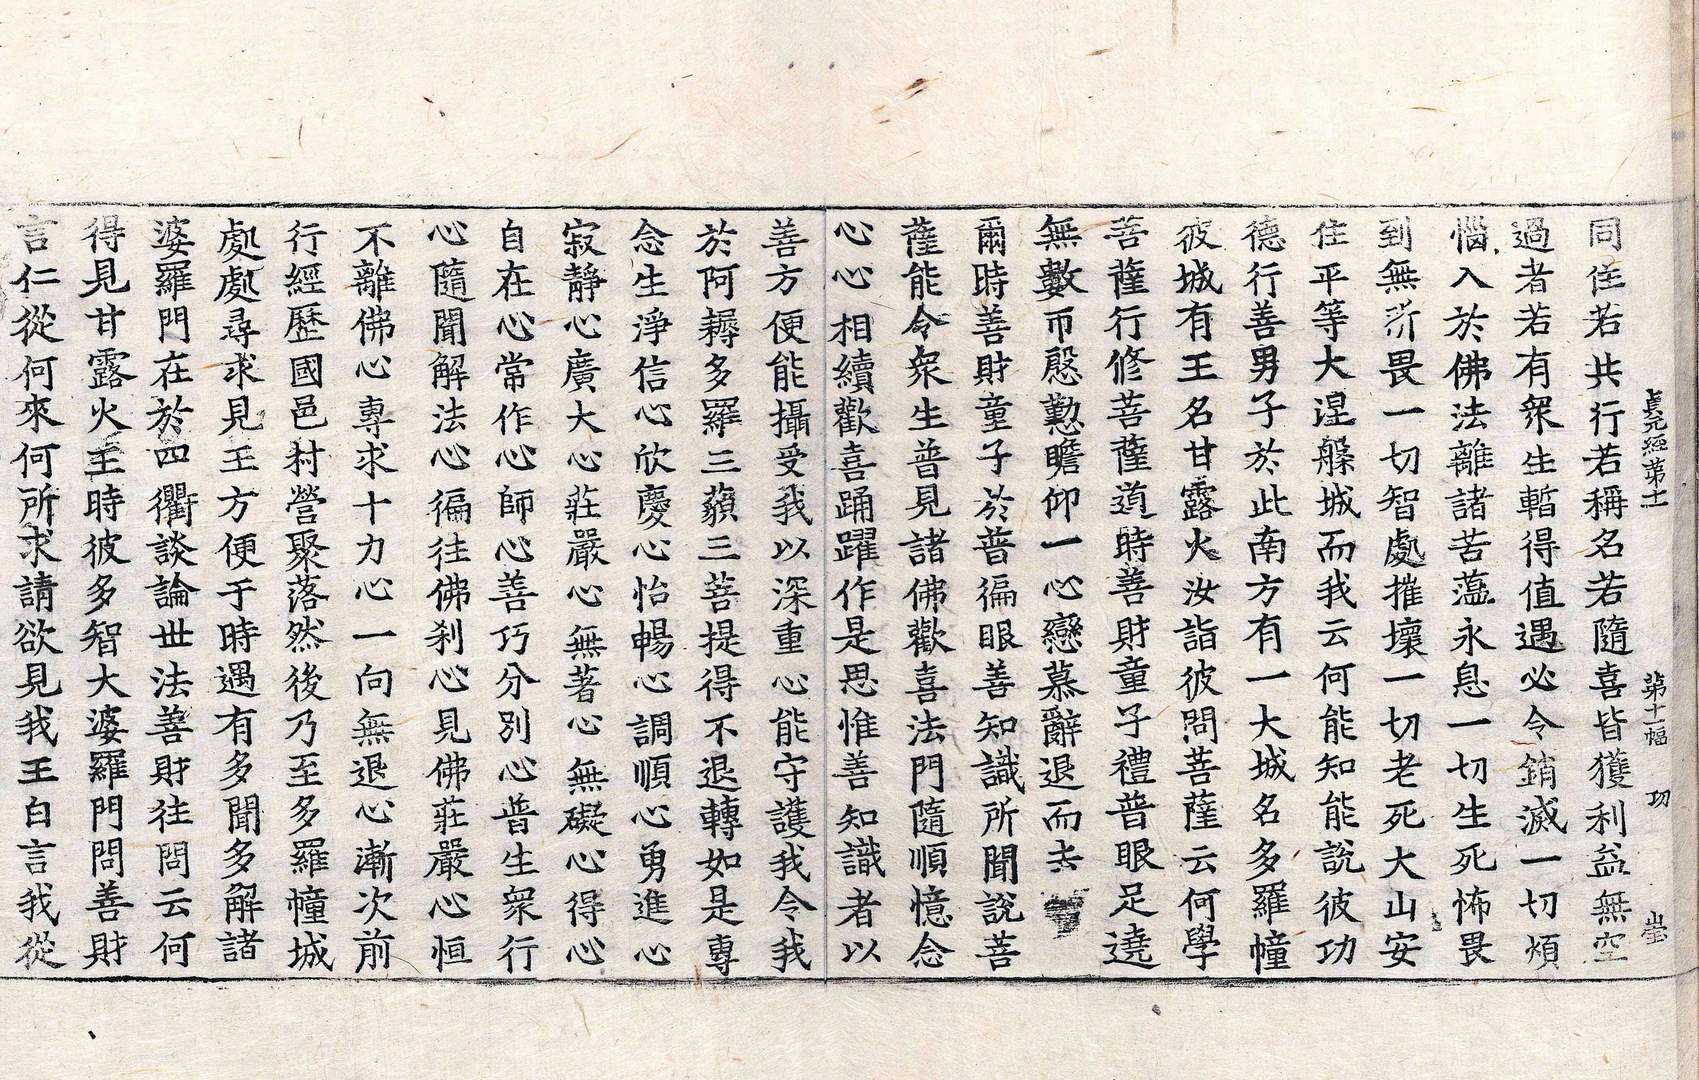 貞元經第十一 第十一幅 功
同住若共行若稱名若隨喜皆獲利益無空
過者若有衆生暫得值遇必令銷滅一切煩
惱入於佛法離諸苦薀永息一切生死怖畏
到無所畏一切智處摧壞一切老死大山安
住平等大涅槃城而我云何能知能說彼功
德行善男子於此南方有一大城名多羅幢
彼城有王名甘露火汝詣彼問菩薩云何學
菩薩行修菩薩道時善財童子禮普眼足遶
無數帀慇懃瞻仰一心戀慕辭退而去
爾時善財童子於普徧眼善知識所聞說菩
薩能令衆生普見諸佛歡喜法門隨順憶念
心心相續歡喜踊躍作是思惟善知識者以
善方便能攝受我以深重心能守護我令我
於阿耨多羅三藐三菩提得不退轉如是專
念生淨信心欣慶心怡暢心調順心勇進心
寂靜心廣大心莊嚴心無著心無礙心得心
自在心常作心師心善巧分別心普生衆行
心隨聞解法心徧往佛刹心見佛莊嚴心恒
不離佛心專求十力心一向無退心漸次前
行經歷國邑村營聚落然後乃至多羅幢城
處處尋求見王方便于時遇有多聞多解諸
婆羅門在於四衢談論世法善財往問云何
得見甘露火王時彼多智大婆羅門問善財
言仁從何來何所求請欲見我王白言我從